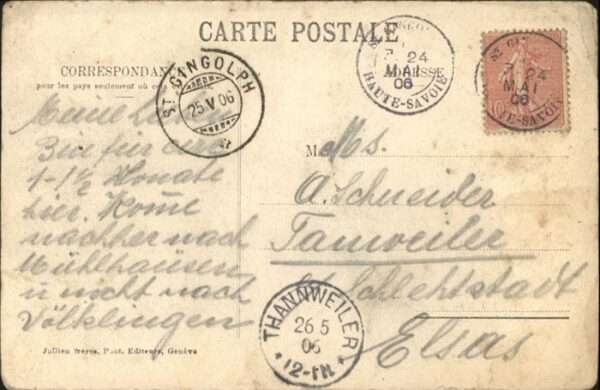 CARTE POSTALE
CORRESPONDAN
pour les pays seulement où ce
ADRESSE
ST. GINGOLPH
25.V 06
24
MAI
06
HAUTE-SAVOIE
24
MAI
06
TE-SAVOIE
10
Meine
Bin für circa
1-1½ Monate
hier. Kome
nachher nach
Mühlhausen
u nicht nach
Völklingen
M
A. Schneider
Tanweiler
Schlehtstadt
Elsas
THANNWEILER
26 5
06
12-1N
Jullien frères, Phot. Editeurs, Genève